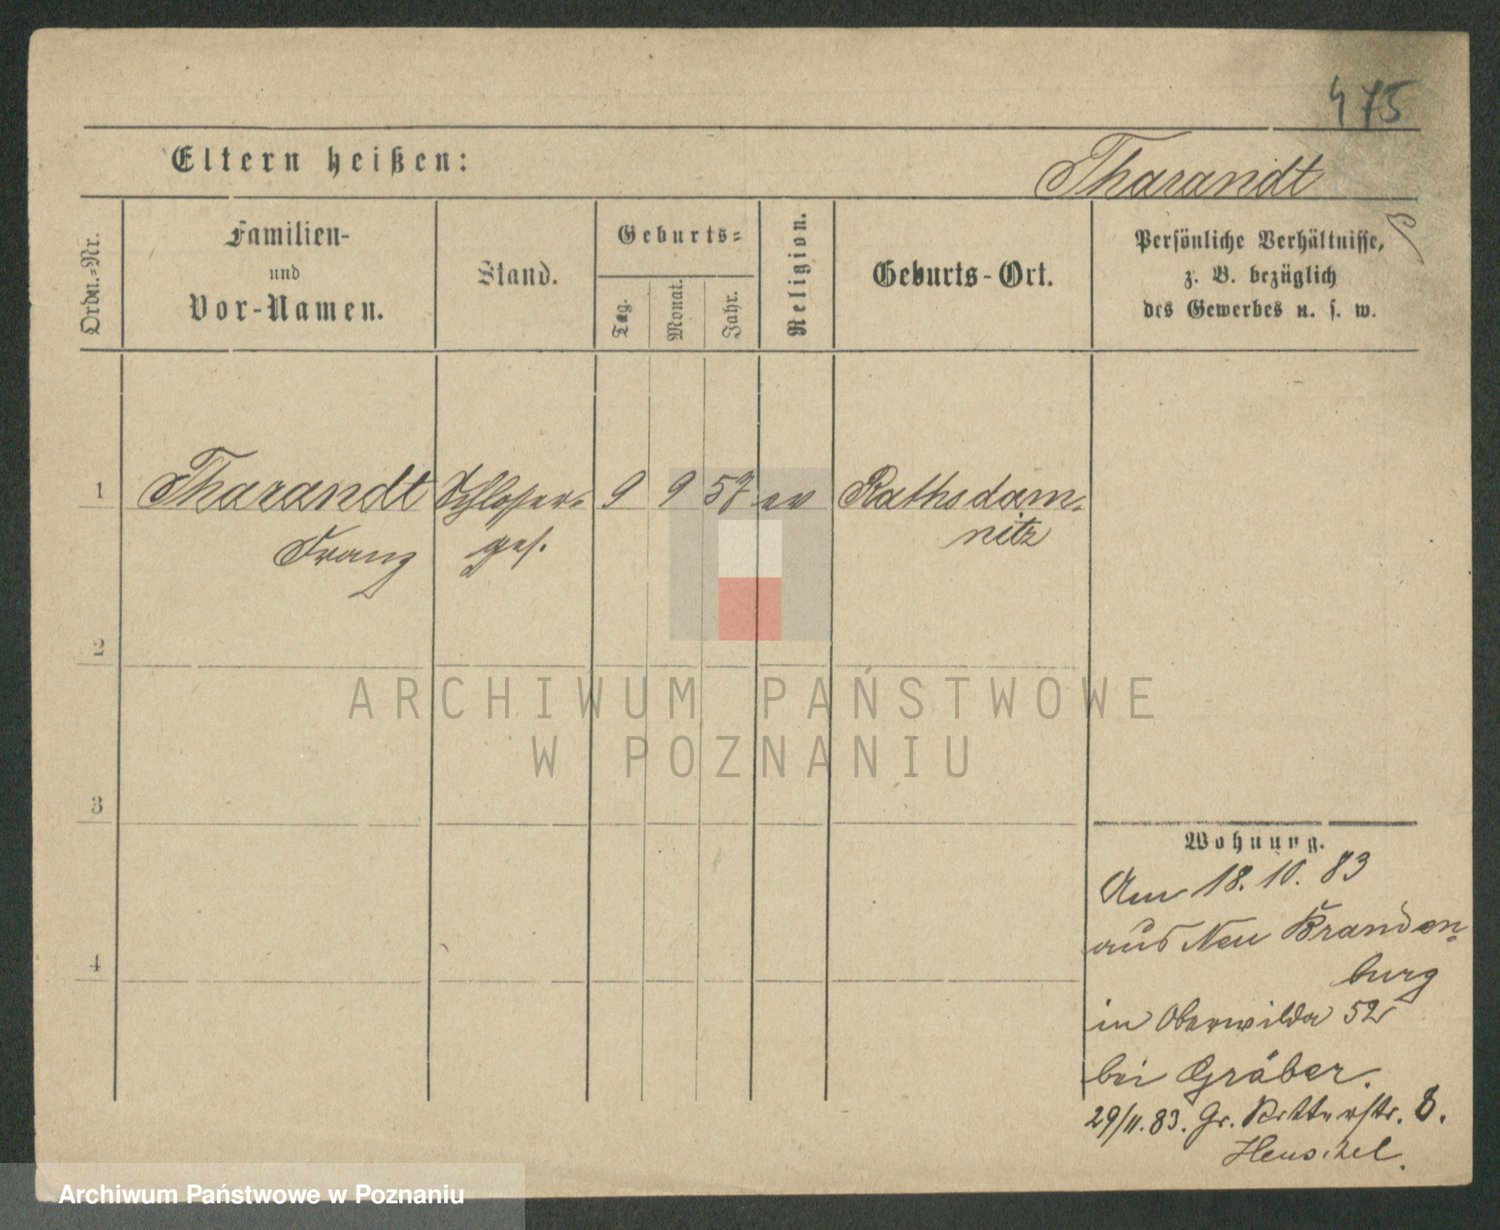 475
Eltern heißen:
Tharandt
Ordn.=Nr.
Familien-
und
Vor-Namen.
Stand.
Geburts=
Tag.
Monat.
Jahr.
Religion.
Geburts-Ort.
Persönliche Verhältnisse,
z. B. bezüglich
des Gewerbes u. s. w.
1 Tharandt Schlosser= 9 9 57 ev Rathsdam=
Franz ges. nitz
2
3
4
Wohnung.
Am 18. 10. 83
aus Neu Branden=
burg
in Oberwilda 52
bei Gräber.
29/11. 83. Gr. Ritterstr. 8.
Henschel.
ARCHIWUM PAŃSTWOWE
W POZNANIU
Archiwum Państwowe w Poznaniu